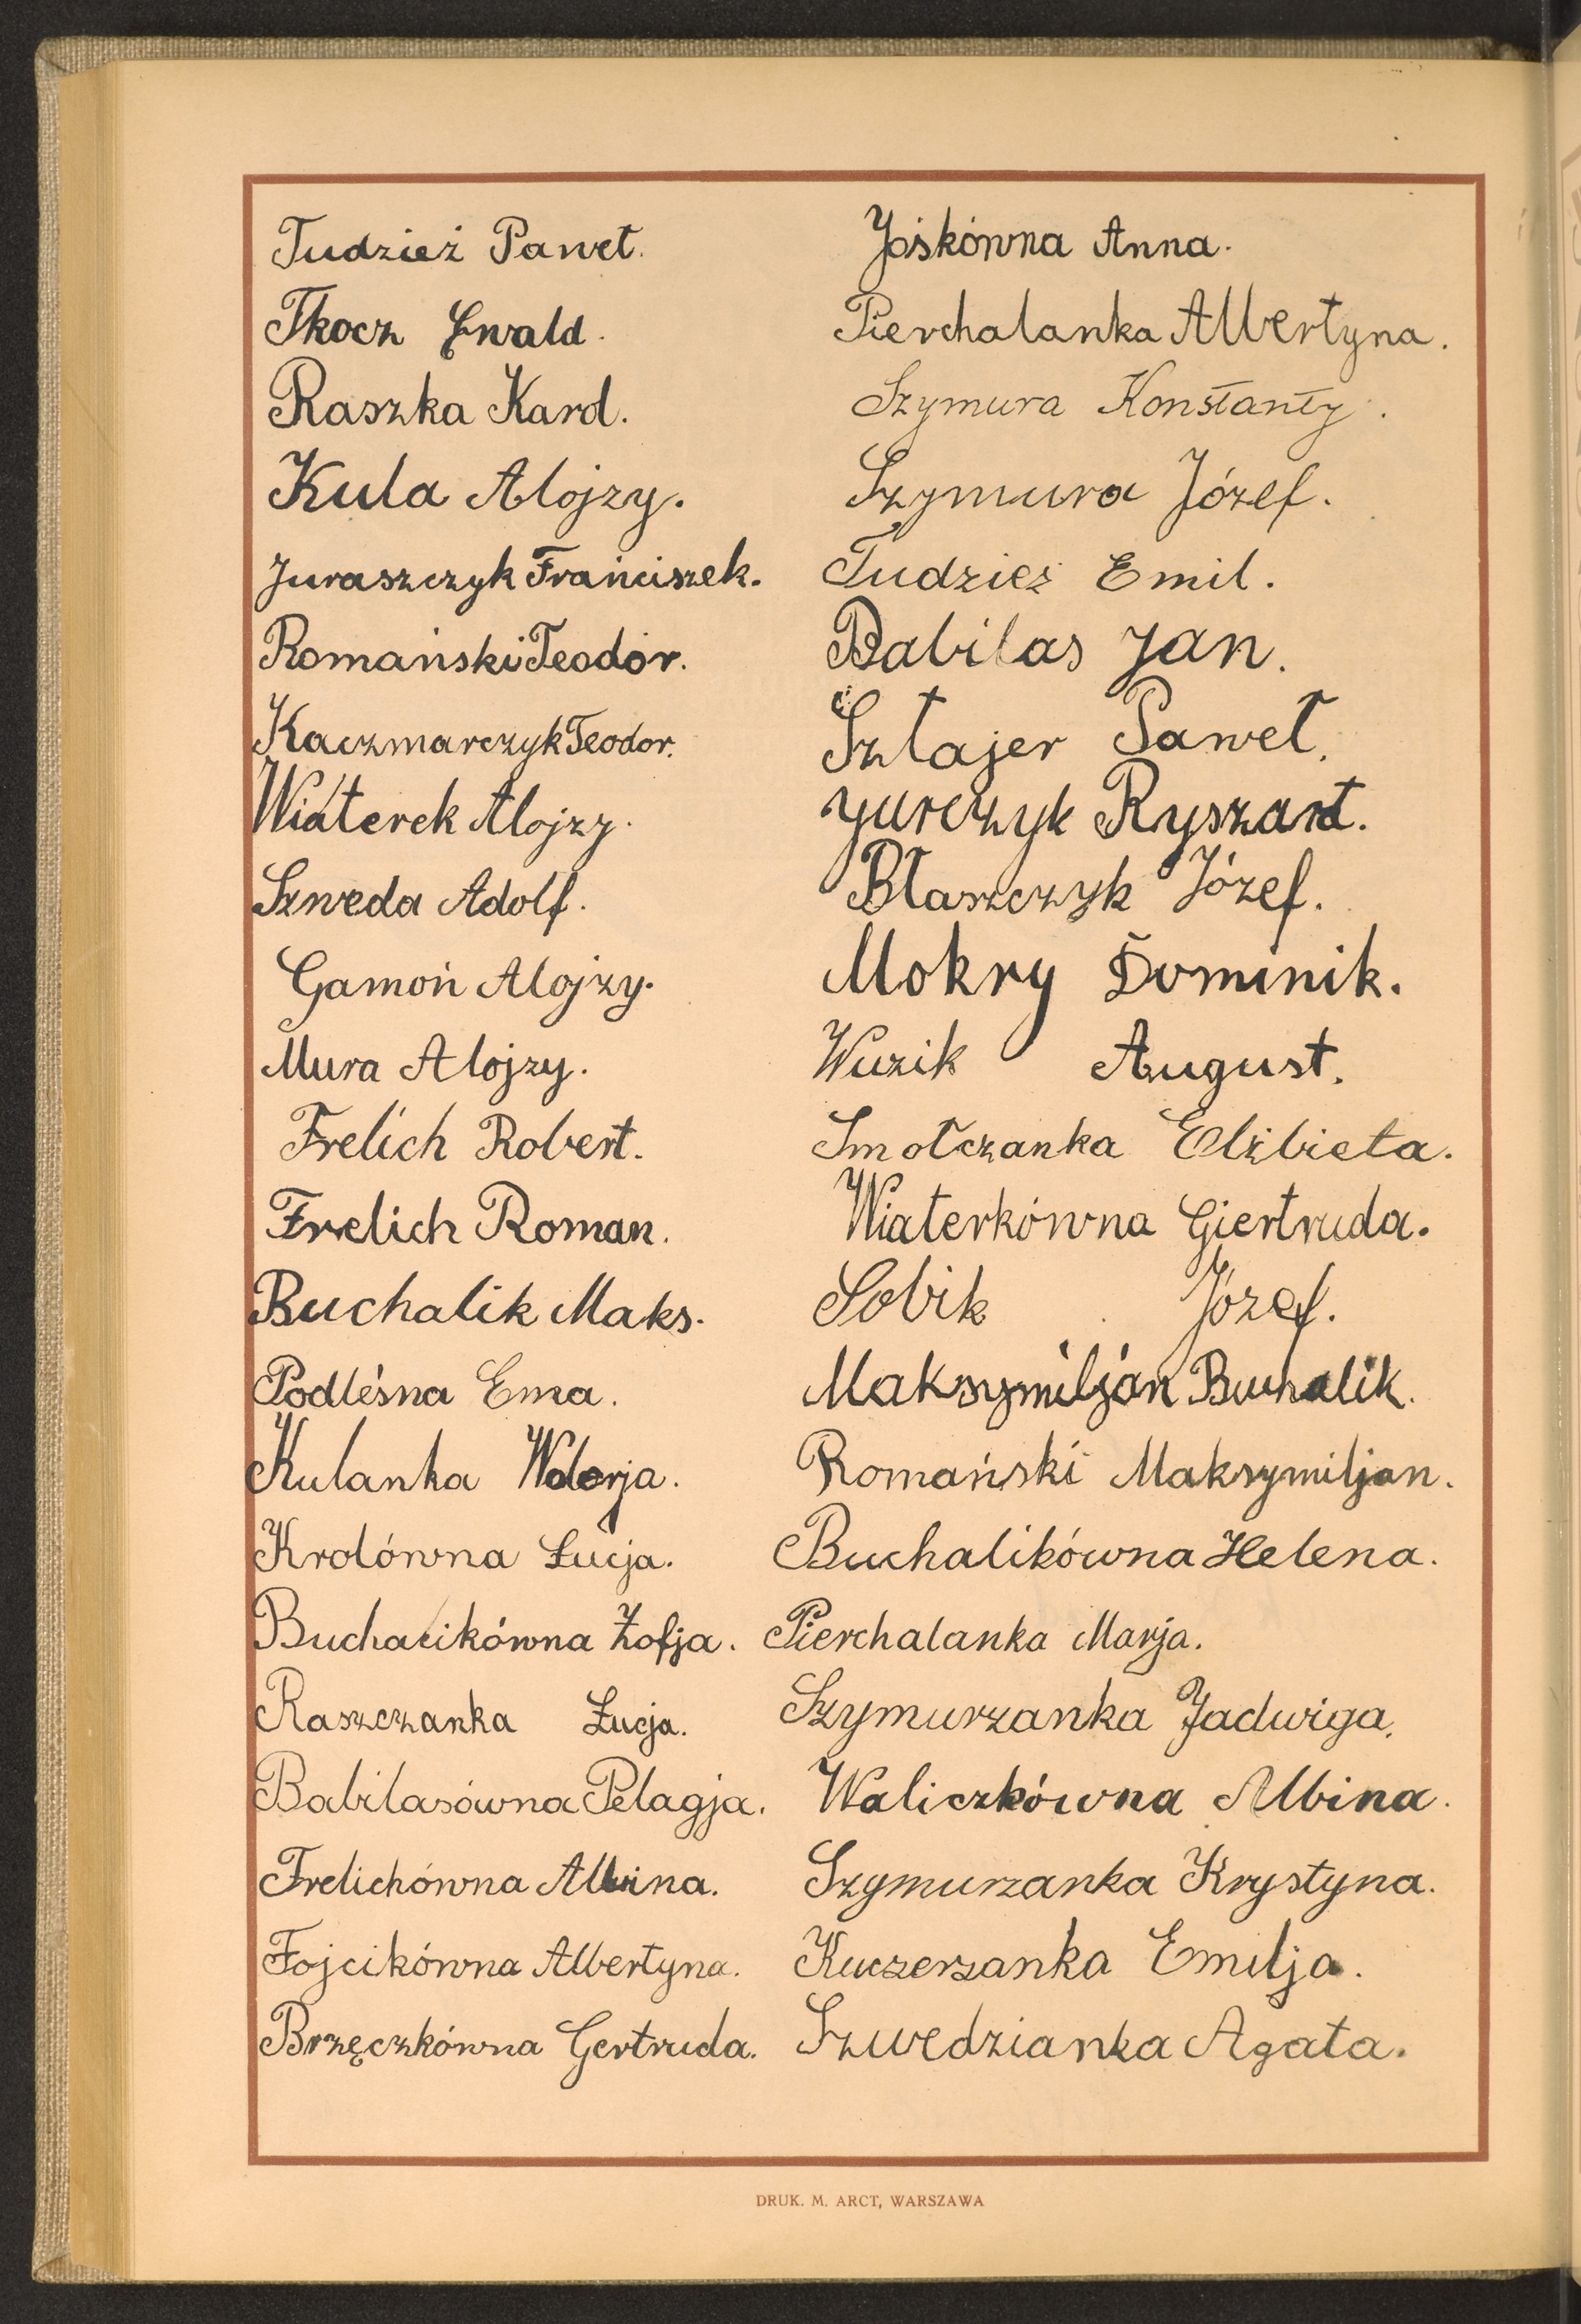 Tudzież Paweł.
Tkocz Ewald.
Raszka Karol.
Kula Alojzy.
Juraszczyk Franciszek.
Romański Teodor.
Kaczmarczyk Teodor.
Wiaterek Alojzy.
Szweda Adolf.
Gamoń Alojzy.
Mura Alojzy.
Frelich Robert.
Frelich Roman.
Buchalik Maks.
Podleśna Ema.
Kulanka Walerja.
Krolówna Łucja.
Buchalikówna Zofja.
Raszczanka Łucja.
Babilasówna Pelagja.
Frelichówna Albina.
Fojcikówna Albertyna.
Brzęczkówna Gertruda.
Jośkówna Anna.
Pierchalanka Albertyna.
Szymura Konstanty.
Szymura Józef.
Tudzież Emil.
Babilas Jan.
Sztajer Paweł.
Jurczyk Ryszard.
Błaszczyk Józef.
Mokry Dominik.
Wuzik August.
Smołczanka Elżbieta.
Wiaterkówna Giertruda.
Sobik Józef.
Maksymiljan Buchalik.
Romański Maksymiljan.
Buchalikówna Helena.
Pierchalanka Marja.
Szymurzanka Jadwiga.
Waliczkówna Albina.
Szymurzanka Krystyna.
Kuczerzanka Emilja.
Szwedzianka Agata.
DRUK. M. ARCT, WARSZAWA